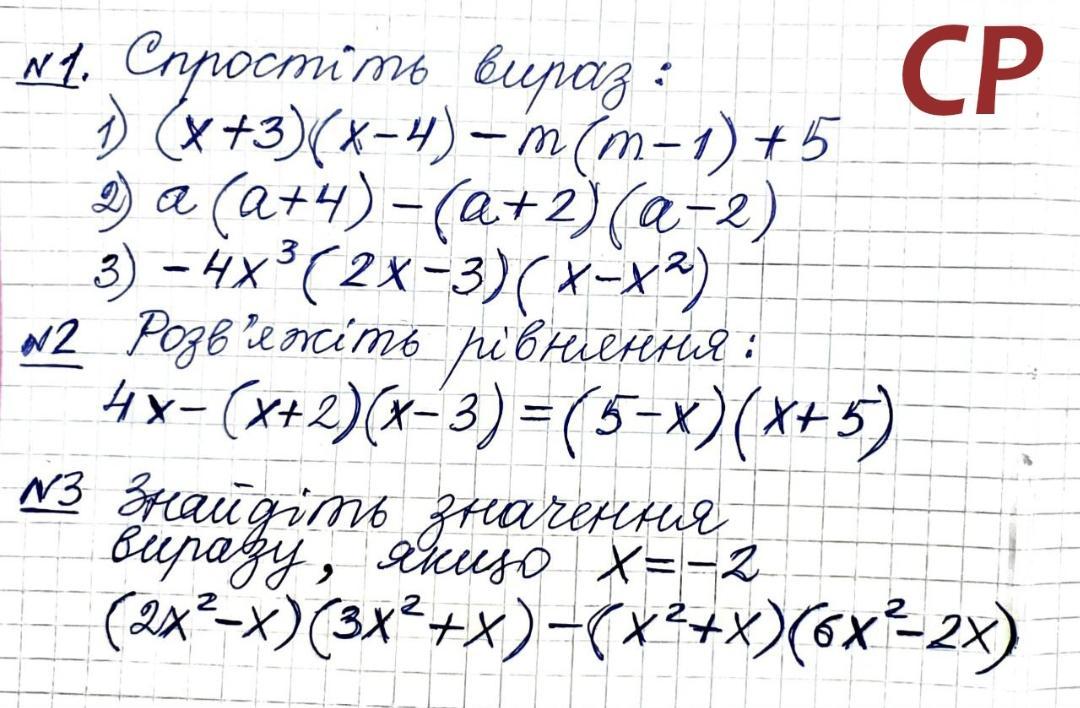 СР
№1. Спростіть вираз:
1) (x+3)(x-4)-m(m-1)+5
2) a(a+4)-(a+2)(a-2)
3) -4x³(2x-3)(x-x²)
№2 Розв'яжіть рівняння:
4x-(x+2)(x-3)=(5-x)(x+5)
№3 Знайдіть значення
виразу, якщо x=-2
(2x²-x)(3x²+x)-(x²+x)(6x²-2x)